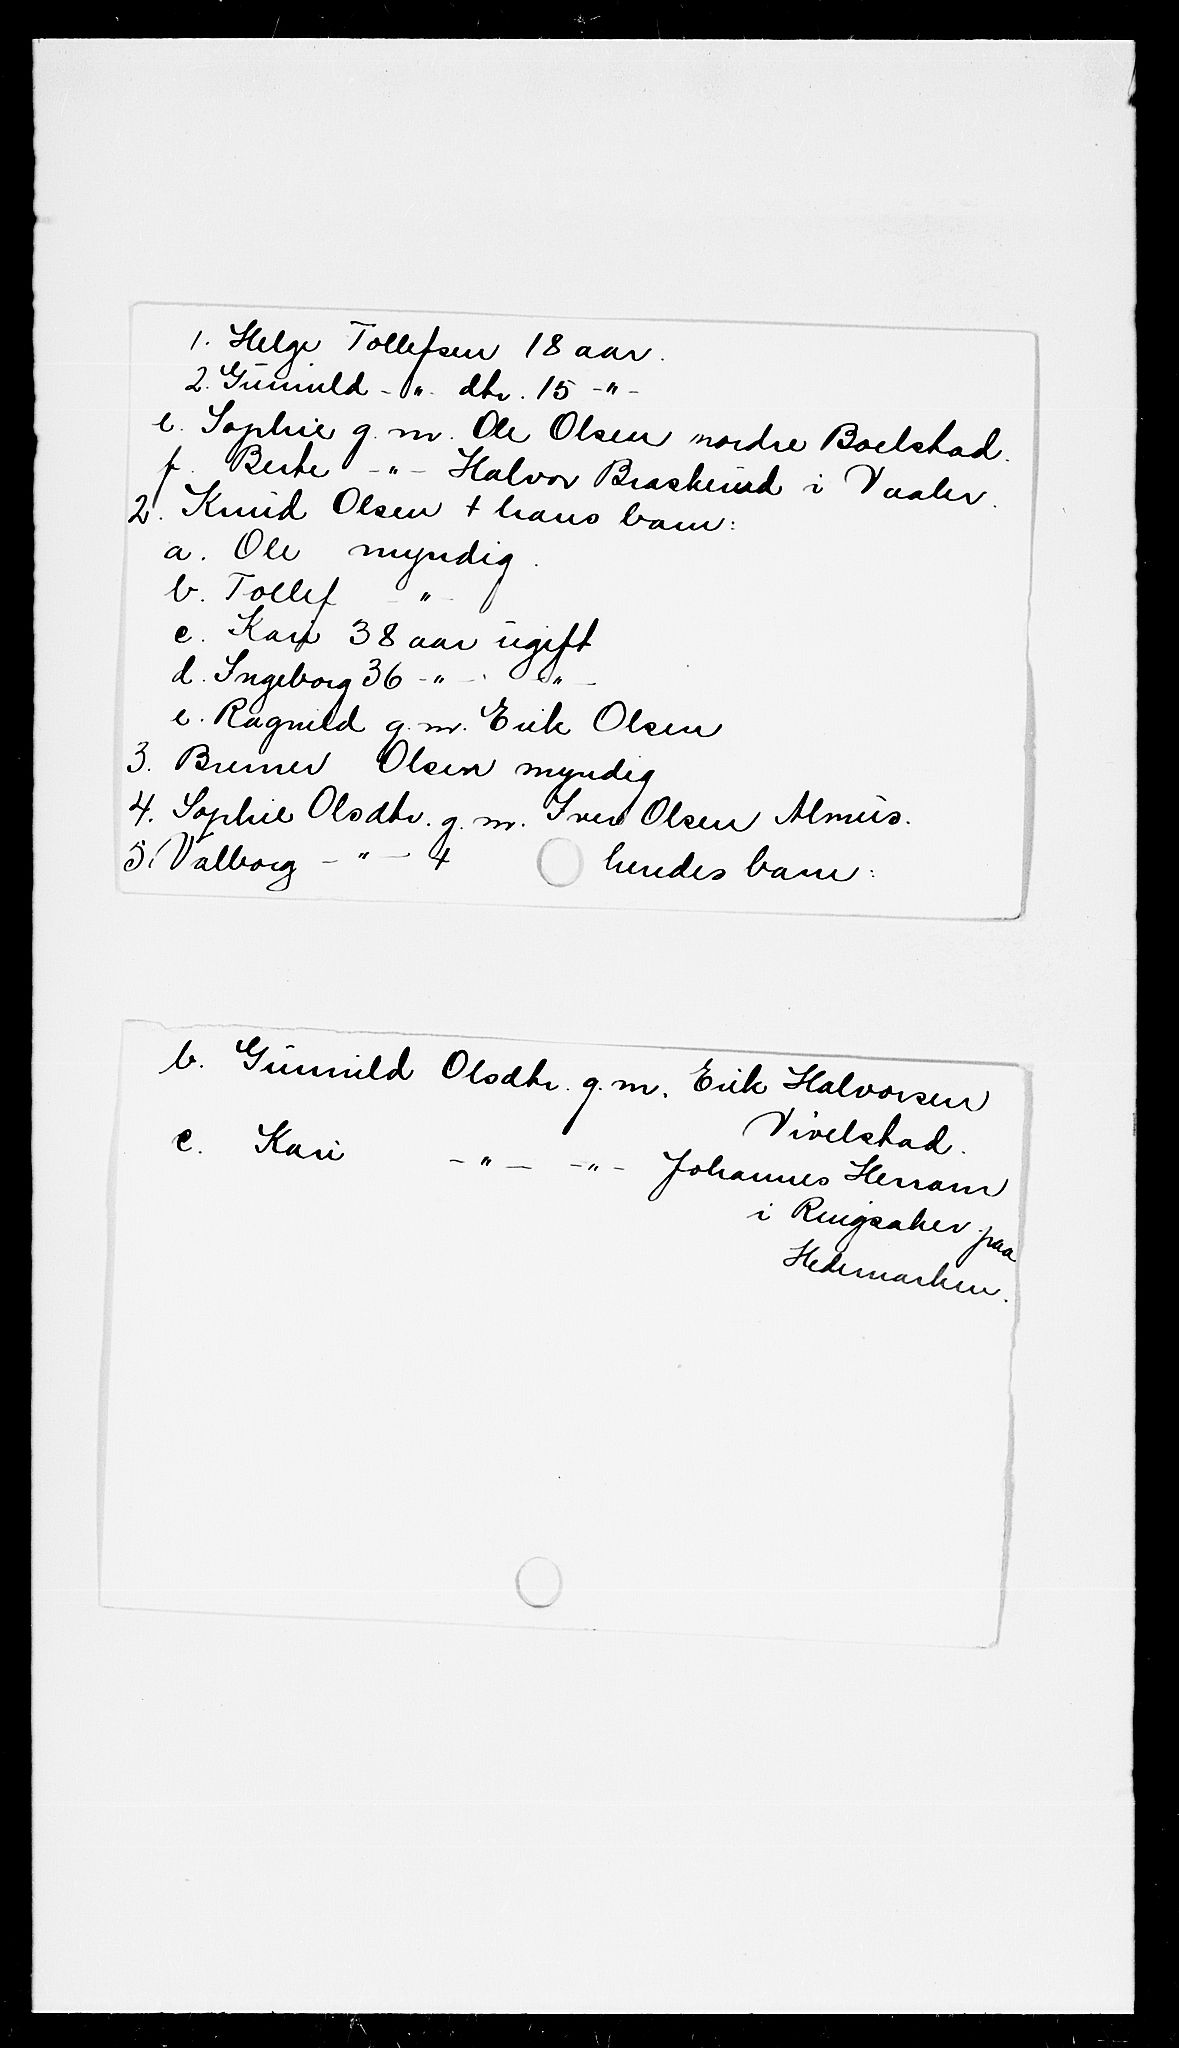 1. Helge Tollefsen 18 aar.
2. Gunnild - " - dtr. 15 - " -
e. Sophie g. m. Ole Olsen nordre Boelstad.
f. Berte - " - Halvor Braskerud i Vaaler.
2. Knud Olsen † hans barn:
a. Ole myndig.
b. Tollef - " -
c. Kari 38 aar ugift
d. Ingeborg 36 - " - - " -
e. Ragnild g. m. Erik Olsen
3. Bremer Olsen myndig
4. Sophie Olsdtr. g. m. Iver Olsen Almus.
5. Valborg - " - † hendes barn:
b. Gunnild Olsdtr. g. m. Erik Halvorsen
Vivelstad.
c. Kari - " - - " - Johannes Herram
i Ringsaker paa
Hedemarken.